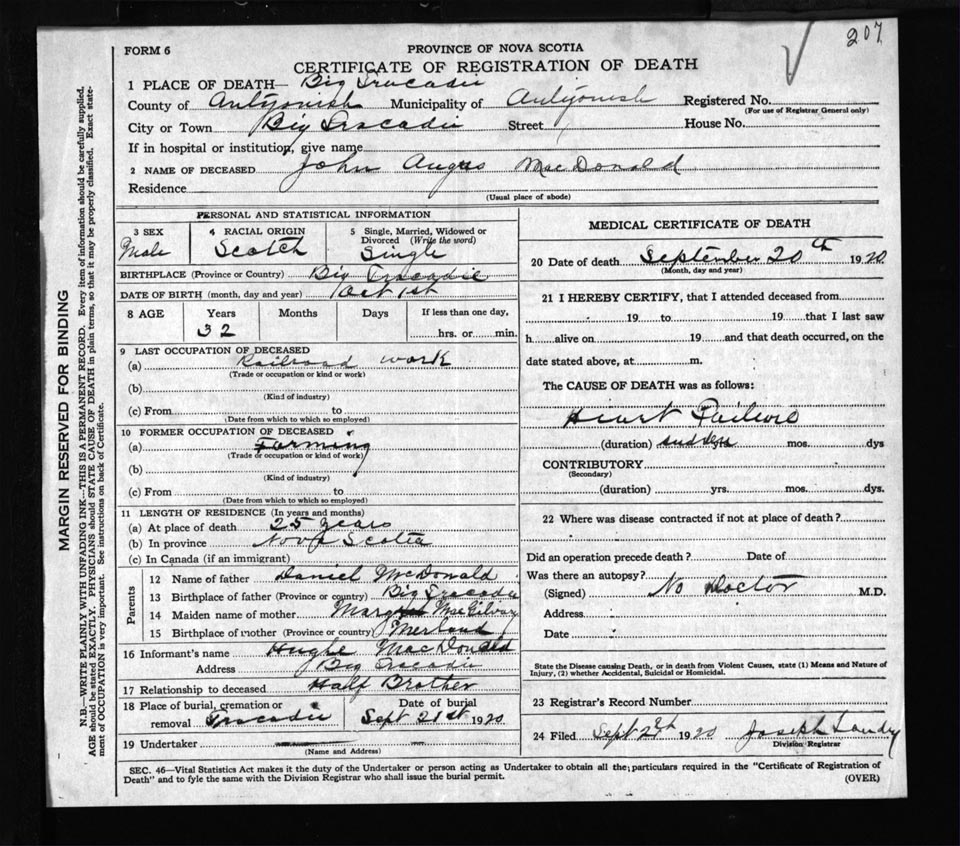 207
FORM 6
PROVINCE OF NOVA SCOTIA
CERTIFICATE OF REGISTRATION OF DEATH
1 PLACE OF DEATH— Big Tracadie
County of Antigonish Municipality of Antigonish Registered No.
(For use of Registrar General only)
City or Town Big Tracadie Street House No.
If in hospital or institution, give name
2 NAME OF DECEASED John Angus MacDonald
Residence
(Usual place of abode)
PERSONAL AND STATISTICAL INFORMATION
3 SEX
Male
4 RACIAL ORIGIN
Scotch
5 Single, Married, Widowed or
Divorced (Write the word)
Single
BIRTHPLACE (Province or Country) Big Tracadie
DATE OF BIRTH (month, day and year) Oct 1st
8 AGE Years Months Days If less than one day,
32 hrs. or min.
9 LAST OCCUPATION OF DECEASED
(a) Railroad work
(Trade or occupation or kind or work)
(b)
(Kind of industry)
(c) From to
(Date from which to which so employed)
10 FORMER OCCUPATION OF DECEASED
(a) Farming
(Trade or occupation or kind of work)
(b)
(Kind of industry)
(c) From to
(Date from which to which so employed)
11 LENGTH OF RESIDENCE (In years and months)
(a) At place of death 25 years
(b) In province Nova Scotia
(c) In Canada (if an immigrant)
Parents
12 Name of father Daniel McDonald
13 Birthplace of father (Province or country) Big Tracadie
14 Maiden name of mother Mary
15 Birthplace of mother (Province or country) Merland
16 Informant's name Hughe MacDonald
Address Big Tracadie
17 Relationship to deceased Half Brother
18 Place of burial, cremation or
removal Tracadie
Date of burial
Sept 21st 1920
19 Undertaker
(Name and Address)
MEDICAL CERTIFICATE OF DEATH
20 Date of death September 20th 1920
(Month, day and year)
21 I HEREBY CERTIFY, that I attended deceased from
19 to 19 that I last saw
h alive on 19 and that death occurred, on the
date stated above, at m.
The CAUSE OF DEATH was as follows:
Heart Failure
(duration) sudden mos. dys
CONTRIBUTORY
(Secondary)
(duration) yrs. mos. dys.
22 Where was disease contracted if not at place of death?
Did an operation precede death? Date of
Was there an autopsy?
(Signed) No Doctor M.D.
Address
Date
State the Disease causing Death, or in death from Violent Causes, state (1) Means and Nature of
Injury, (2) whether Accidental, Suicidal or Homicidal.
23 Registrar's Record Number
24 Filed Sept 1920 Joseph Landry
Division Registrar
SEC. 46—Vital Statistics Act makes it the duty of the Undertaker or person acting as Undertaker to obtain all the particulars required in the "Certificate of Registration of
Death" and to fyle the same with the Division Registrar who shall issue the burial permit.
(OVER)
MARGIN RESERVED FOR BINDING
N.B.—WRITE PLAINLY WITH UNFADING INK—THIS IS A PERMANENT RECORD. Every item of information should be carefully supplied.
AGE should be stated EXACTLY. PHYSICIANS should STATE CAUSE OF DEATH in plain terms, so that it may be properly classified. Exact state-
ment of OCCUPATION is very important. See instructions on back of Certificate.